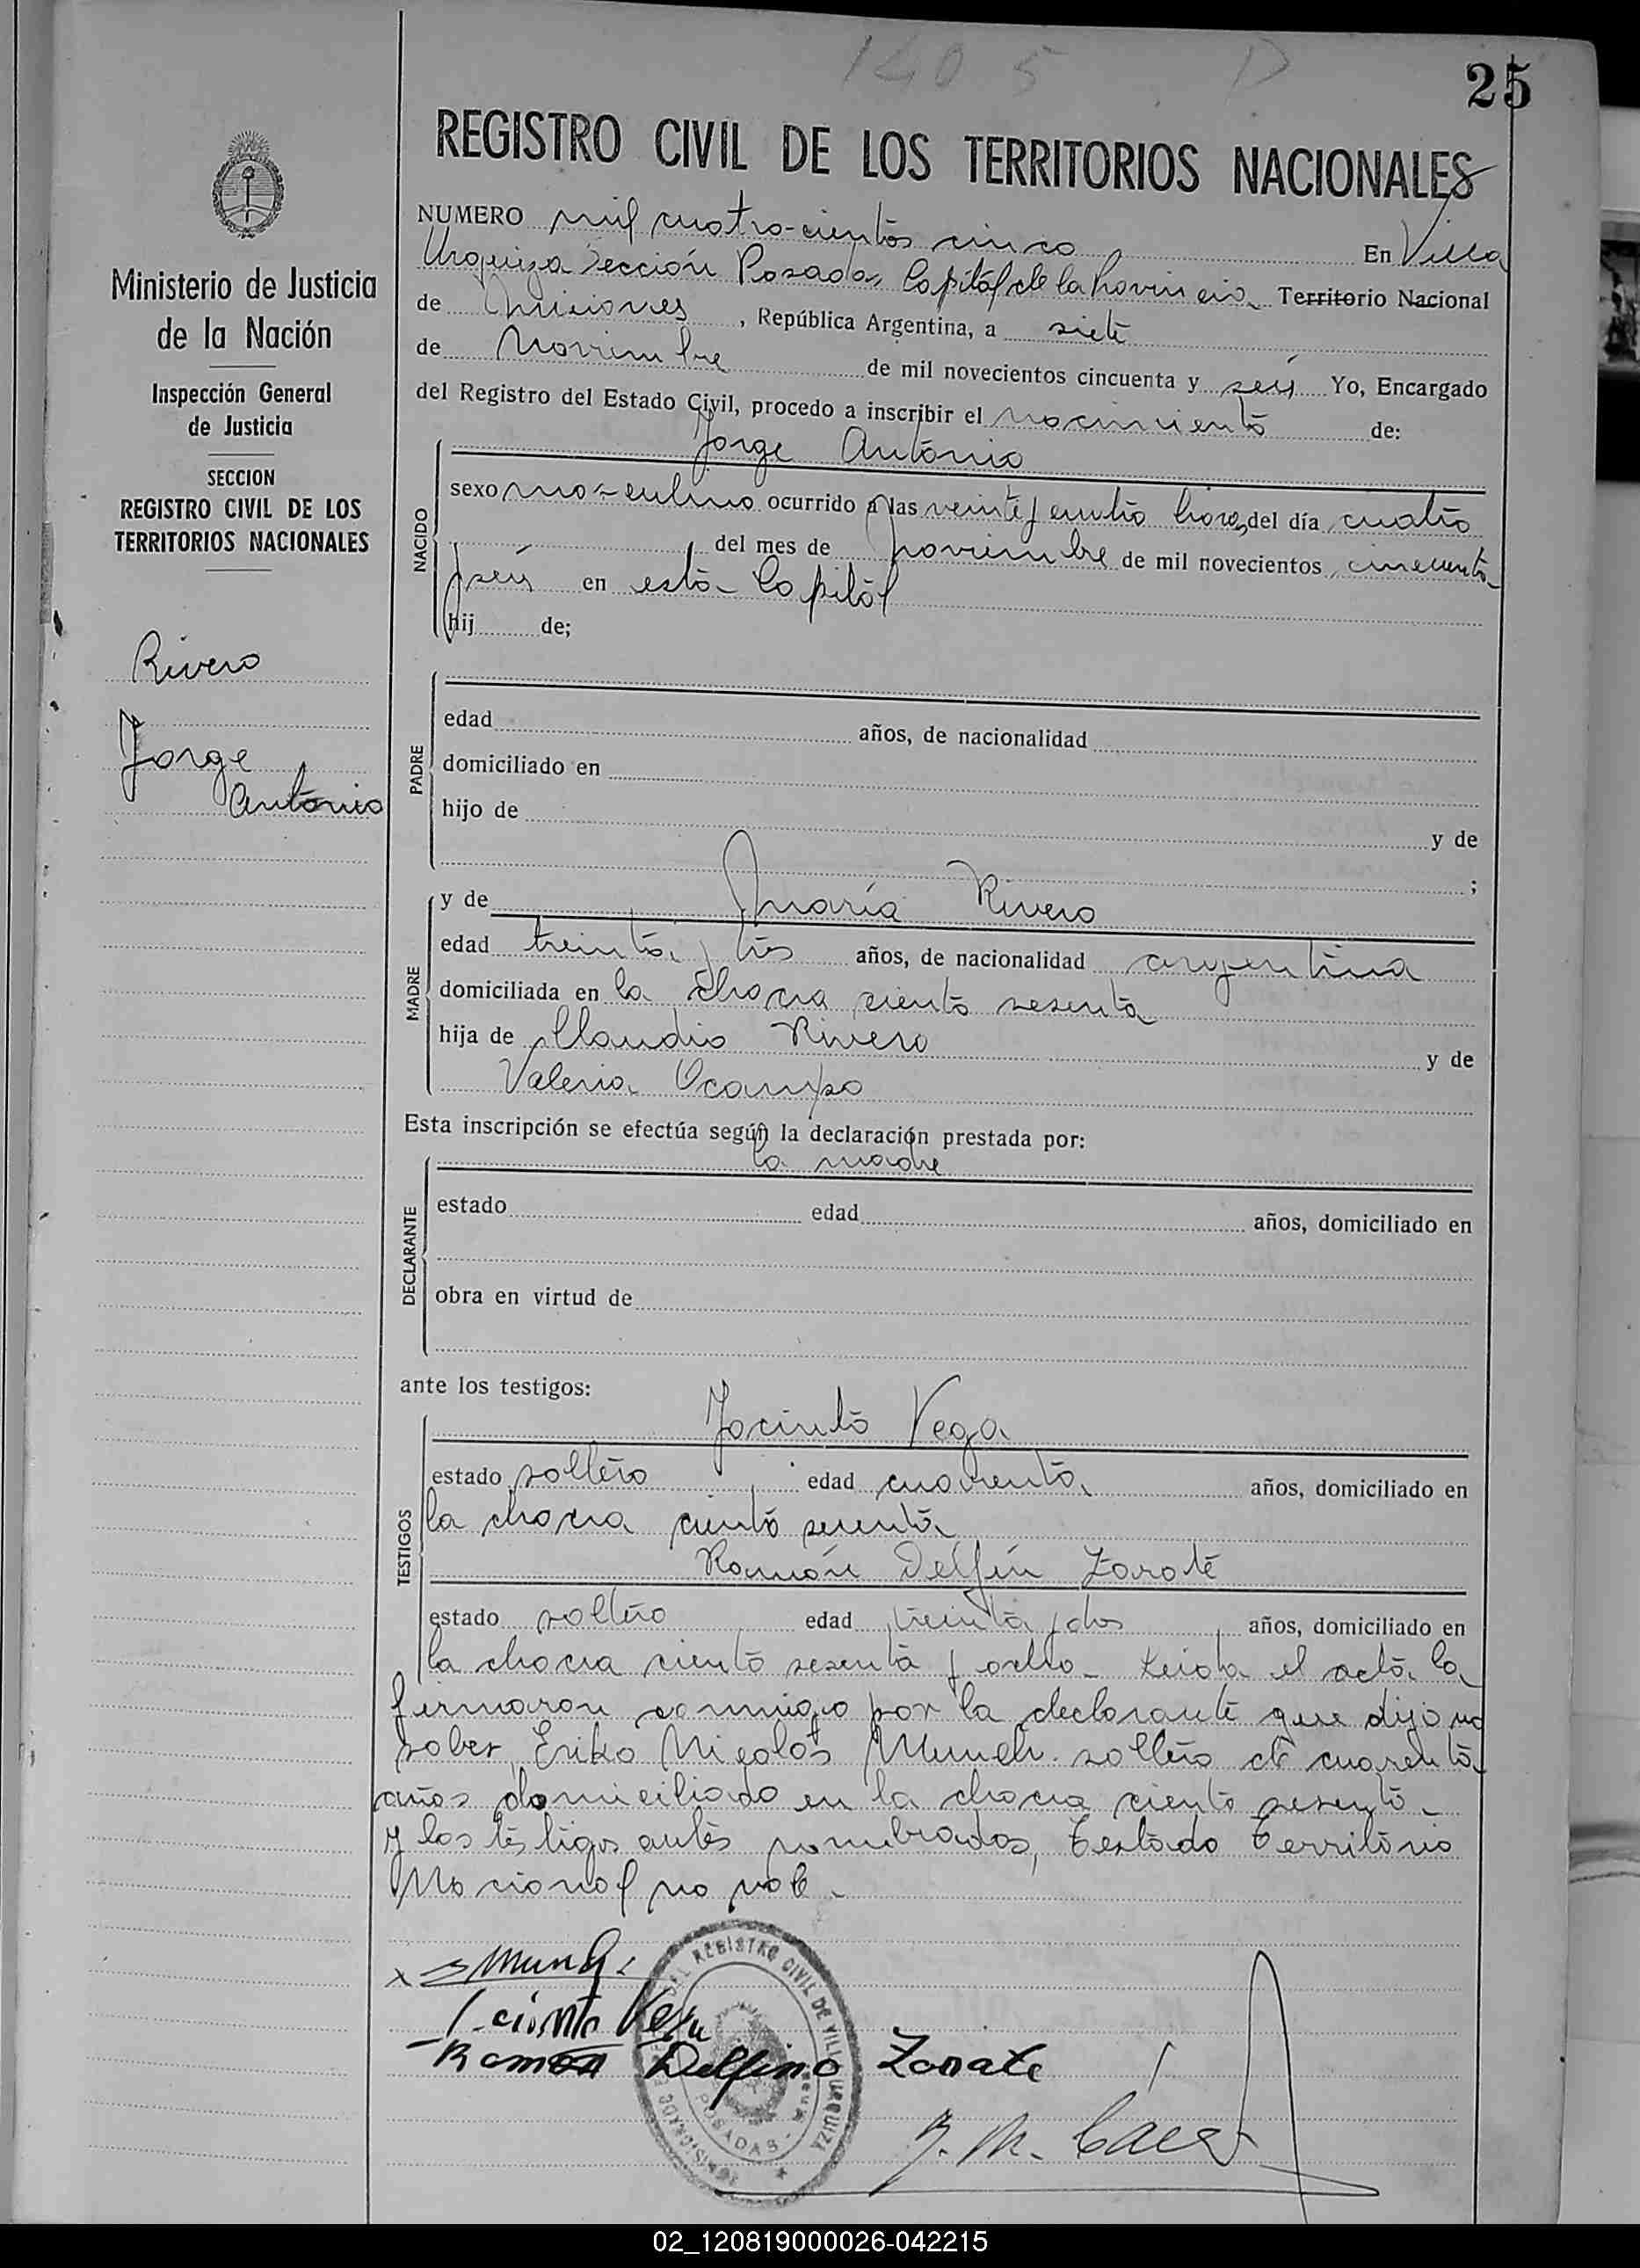 1405 D
25
REGISTRO CIVIL DE LOS TERRITORIOS NACIONALES
Ministerio de Justicia
de la Nación
Inspección General
de Justicia
SECCION
REGISTRO CIVIL DE LOS
TERRITORIOS NACIONALES
Rivero
Jorge
Antonio
NUMERO mil cuatro-cientos cinco En Villa
Urquiza Sección Posadas, Capital de la Provincia Territorio Nacional
de Misiones, República Argentina, a siete
de Noviembre de mil novecientos cincuenta y seis Yo, Encargado
del Registro del Estado Civil, procedo a inscribir el nacimiento de:
Jorge Antonio
NACIDO
sexo masculino ocurrido a las veinte y cuatro horas, del día cuatro
del mes de noviembre de mil novecientos cincuenta
y seis en esta Capital
hij de;
PADRE
edad años, de nacionalidad
domiciliado en
hijo de y de
;
MADRE
y de María Rivero
edad treinta y tres años, de nacionalidad argentina
domiciliada en la chacra ciento sesenta
hija de Claudio Rivero y de
Valeria Ocampo
Esta inscripción se efectúa según la declaración prestada por:
la madre
DECLARANTE
estado edad años, domiciliado en
obra en virtud de
ante los testigos:
TESTIGOS
Jacinto Vega
estado soltero edad cuarenta años, domiciliado en
la chacra ciento sesenta
Ramón Delfín Zarate
estado soltero edad treinta y dos años, domiciliado en
la chacra ciento sesenta y ocho - Leida el acta la
firmaron conmigo por la declarante que dijo no
saber, Eriko Nicolás Munch soltero de cuarenta
años domiciliado en la chacra ciento sesenta -
y los testigos antes nombrados, Testado Territorio
Nacional no vale -
x E Munch
Jacinto Vega
Ramon Delfino Zarate
DEL REGISTRO CIVIL DE VILLA URQUIZA
POSADAS
02_120819000026-042215